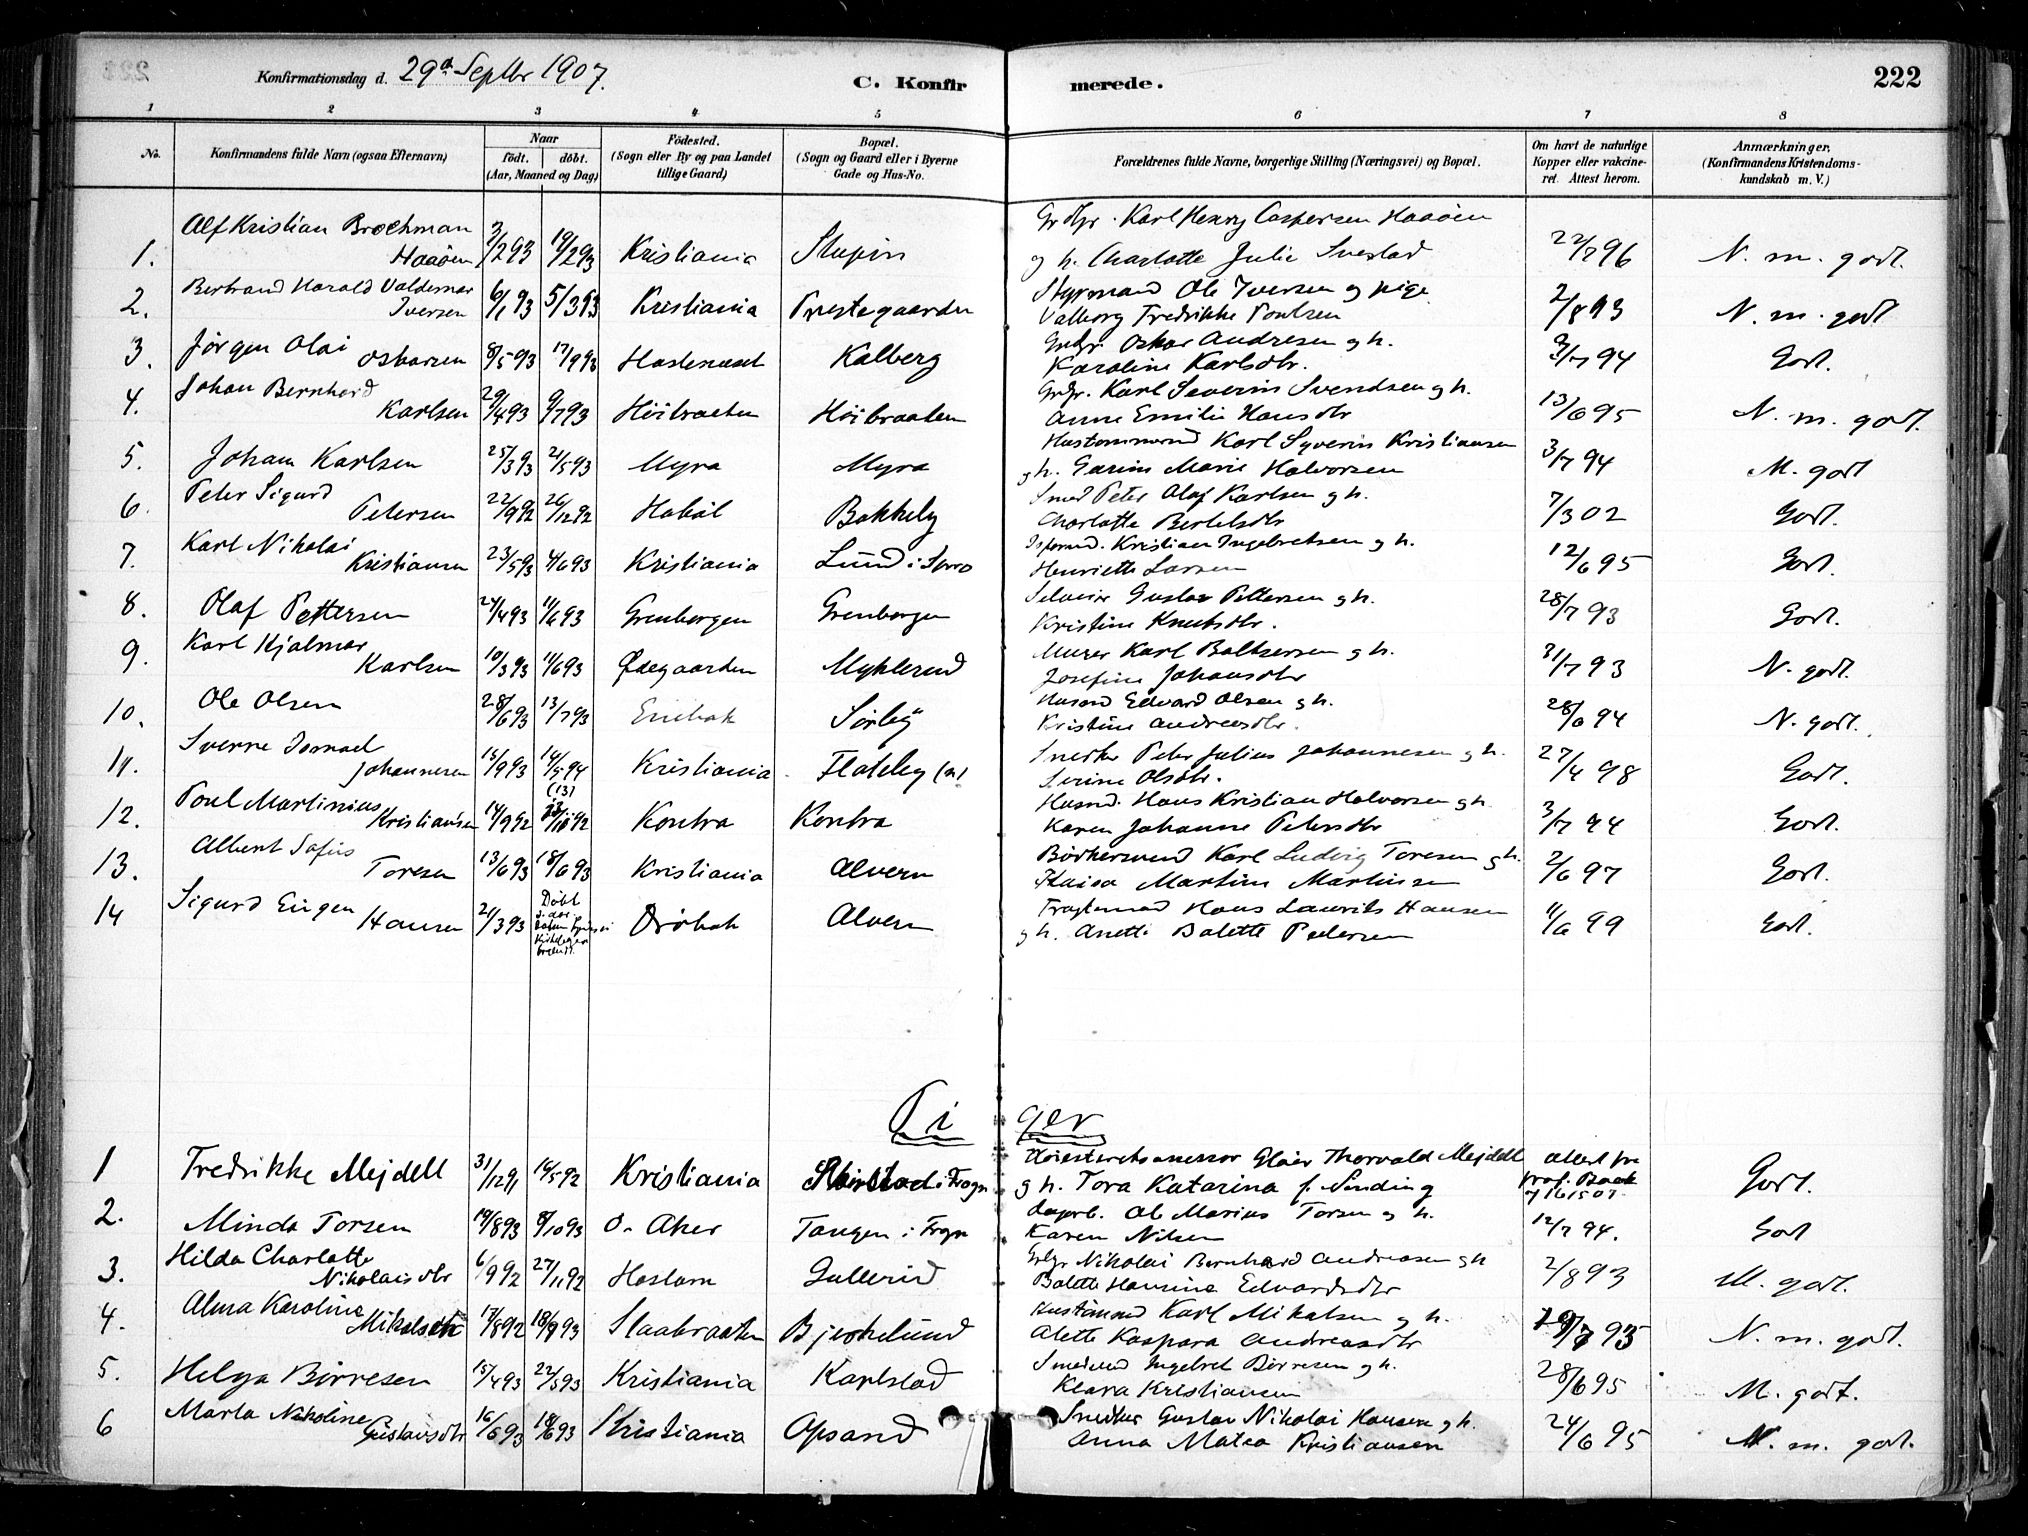 Konfirmationsdag d. 29de Septbr 1907.
C. Konfirmerede.
222
1 2 3 4 5 6 7 8
No.
Konfirmandens fulde Navn (ogsaa Efternavn)
Naar
födt. döbt.
(Aar, Maaned og Dag)
Födested.
(Sogn eller By og paa Landet
tillige Gaard)
Bopæl.
(Sogn og Gaard eller i Byerne
Gade og Hus-No.
Forældrenes fulde Navne, borgerlige Stilling (Næringsvei) og Bopæl.
Om havt de naturlige
Kopper eller vakcine-
ret. Attest herom.
Anmærkninger.
(Konfirmandens Kristendoms-
kundskab m. V.)
1. Alf Kristian Brochman Haaöen 3/2 93 19/2 93 Kristiania Grdbr. Karl Henry Caspersen Haaöen
og h. Charlotte Julie Svestad 22/7 96 N. m. godt.
2. Bertrand Harald Valdemar Iversen 6/1 93 5/3 93 Kristiania Prestegaarden Styrmand Ole Iversen og pige
Valborg Fredrikke Poulsen 2/8 93 N. m. godt
3. Jörgen Olai Oskarsen 8/5 93 17/9 93 Kalberg Grdbr. Oskar Andresen og h.
Karoline Karlsdtr. 3/7 94 Godt.
4. Johan Bernhard Karlsen 29/4 93 9/7 93 Höibraaten Höibraaten Grdbr. Karl Severin Svendsen og h.
Anne Emilie Hansdtr 13/6 95 N. m. godt.
5. Johan Karlsen 25/3 93 2/5 93 Myra Myra Karl Syverin Kristiansen
og h. Marie Halvorsen 3/7 94 M. godt
6. Peter Sigurd Petersen 22/9 92 26/12 92 Haböl Bakkely Smed Peter Olaf Karlsen og h.
Charlotte Bertelsdtr 7/3 02 Godt.
7. Karl Nikolai Kristiansen 23/5 93 4/6 93 Kristiania Lund i Kristian Ingebretsen og h.
Henriette Larsen 12/6 95 Godt.
8. Olaf Pettersen 24/4 93 11/6 93 Grenbergen Grenbergen Selveier Gustav Pettersen og h.
Kristine Knutsdtr. 28/7 93 Godt.
9. Karl Hjalmar Karlsen 10/3 93 11/6 93 Ødegaarden Myklerud Murer Karl Baltsersen og h.
Josefine Johansdtr 31/7 93 N. godt.
10. Ole Olsen 28/6 93 13/7 93 Enebak Sörby Husmd Edvard Olsen og h.
Kristine Andreasdtr. 28/6 94 N. godt.
11. Sverre Ismael Johannesen 15/9 93 14/5 94 Kristiania Flateby Snedker Peter Julius Johannesen og h.
Serine Olsdtr. 27/4 98 Godt.
12. Poul Martinius Kristiansen 14/9 92 (13) Kontra Kontra Husmd. Hans Kristian Halvorsen og h.
Karen Johanne Petersdtr 3/7 94 Godt.
13. Albert Sofus Toresen 13/6 93 18/6 93 Kristiania Alvern Bödkersvend Karl Ludvig Toresen og h.
Martine Martinsen 2/6 97 Godt.
14 Sigurd Eugen Hansen 21/3 93 Döbt Dröbak Alvern Fragtemand Hans Laurits Hansen
og h. Anette Balette Pedersen 11/6 99 Godt.
Piger
1 Fredrikke Mejdell 31/12 91 16/5 92 Kristiania i Frogn Höiesteretsassessor Glöer Thorvald Mejdell
og h. Tora Katarina f. Sinding Attest fra
Prof. Boeck
Godt.
2. Minda Torsen 19/8 93 8/10 93 Ö. Aker Tangen i Frogn Ol Marius Torsen og h.
Karen Nilsen 12/7 94. Godt
3. Hilda Charlotte Nikolaisdtr 6/9 92 27/11 92 Haslam Gullerud Grdbr Nikolai Bernhard Andreasen og h
Balette Hansine Edvardsdtr 2/8 93 M. godt.
4. Alma Karoline Mikalsen 17/8 92 Slaabraaten Bjerkelund Karl Mikalsen og h.
Alette Kaspara Andreasdtr N. m. godt.
5. Helga Börresen 15/4 93 22/5 93 Kristiania Karlstad Smedsvend Ingebret Börresen og h.
Klara Kristiansen 28/6 95 M. godt.
6 Marta Nikoline Gustavsdtr 16/6 93 Kristiania Opsand Snedker Gustav Nikolai Hansen og h.
Anna Matea Kristiansen 24/6 95 N. m. godt.